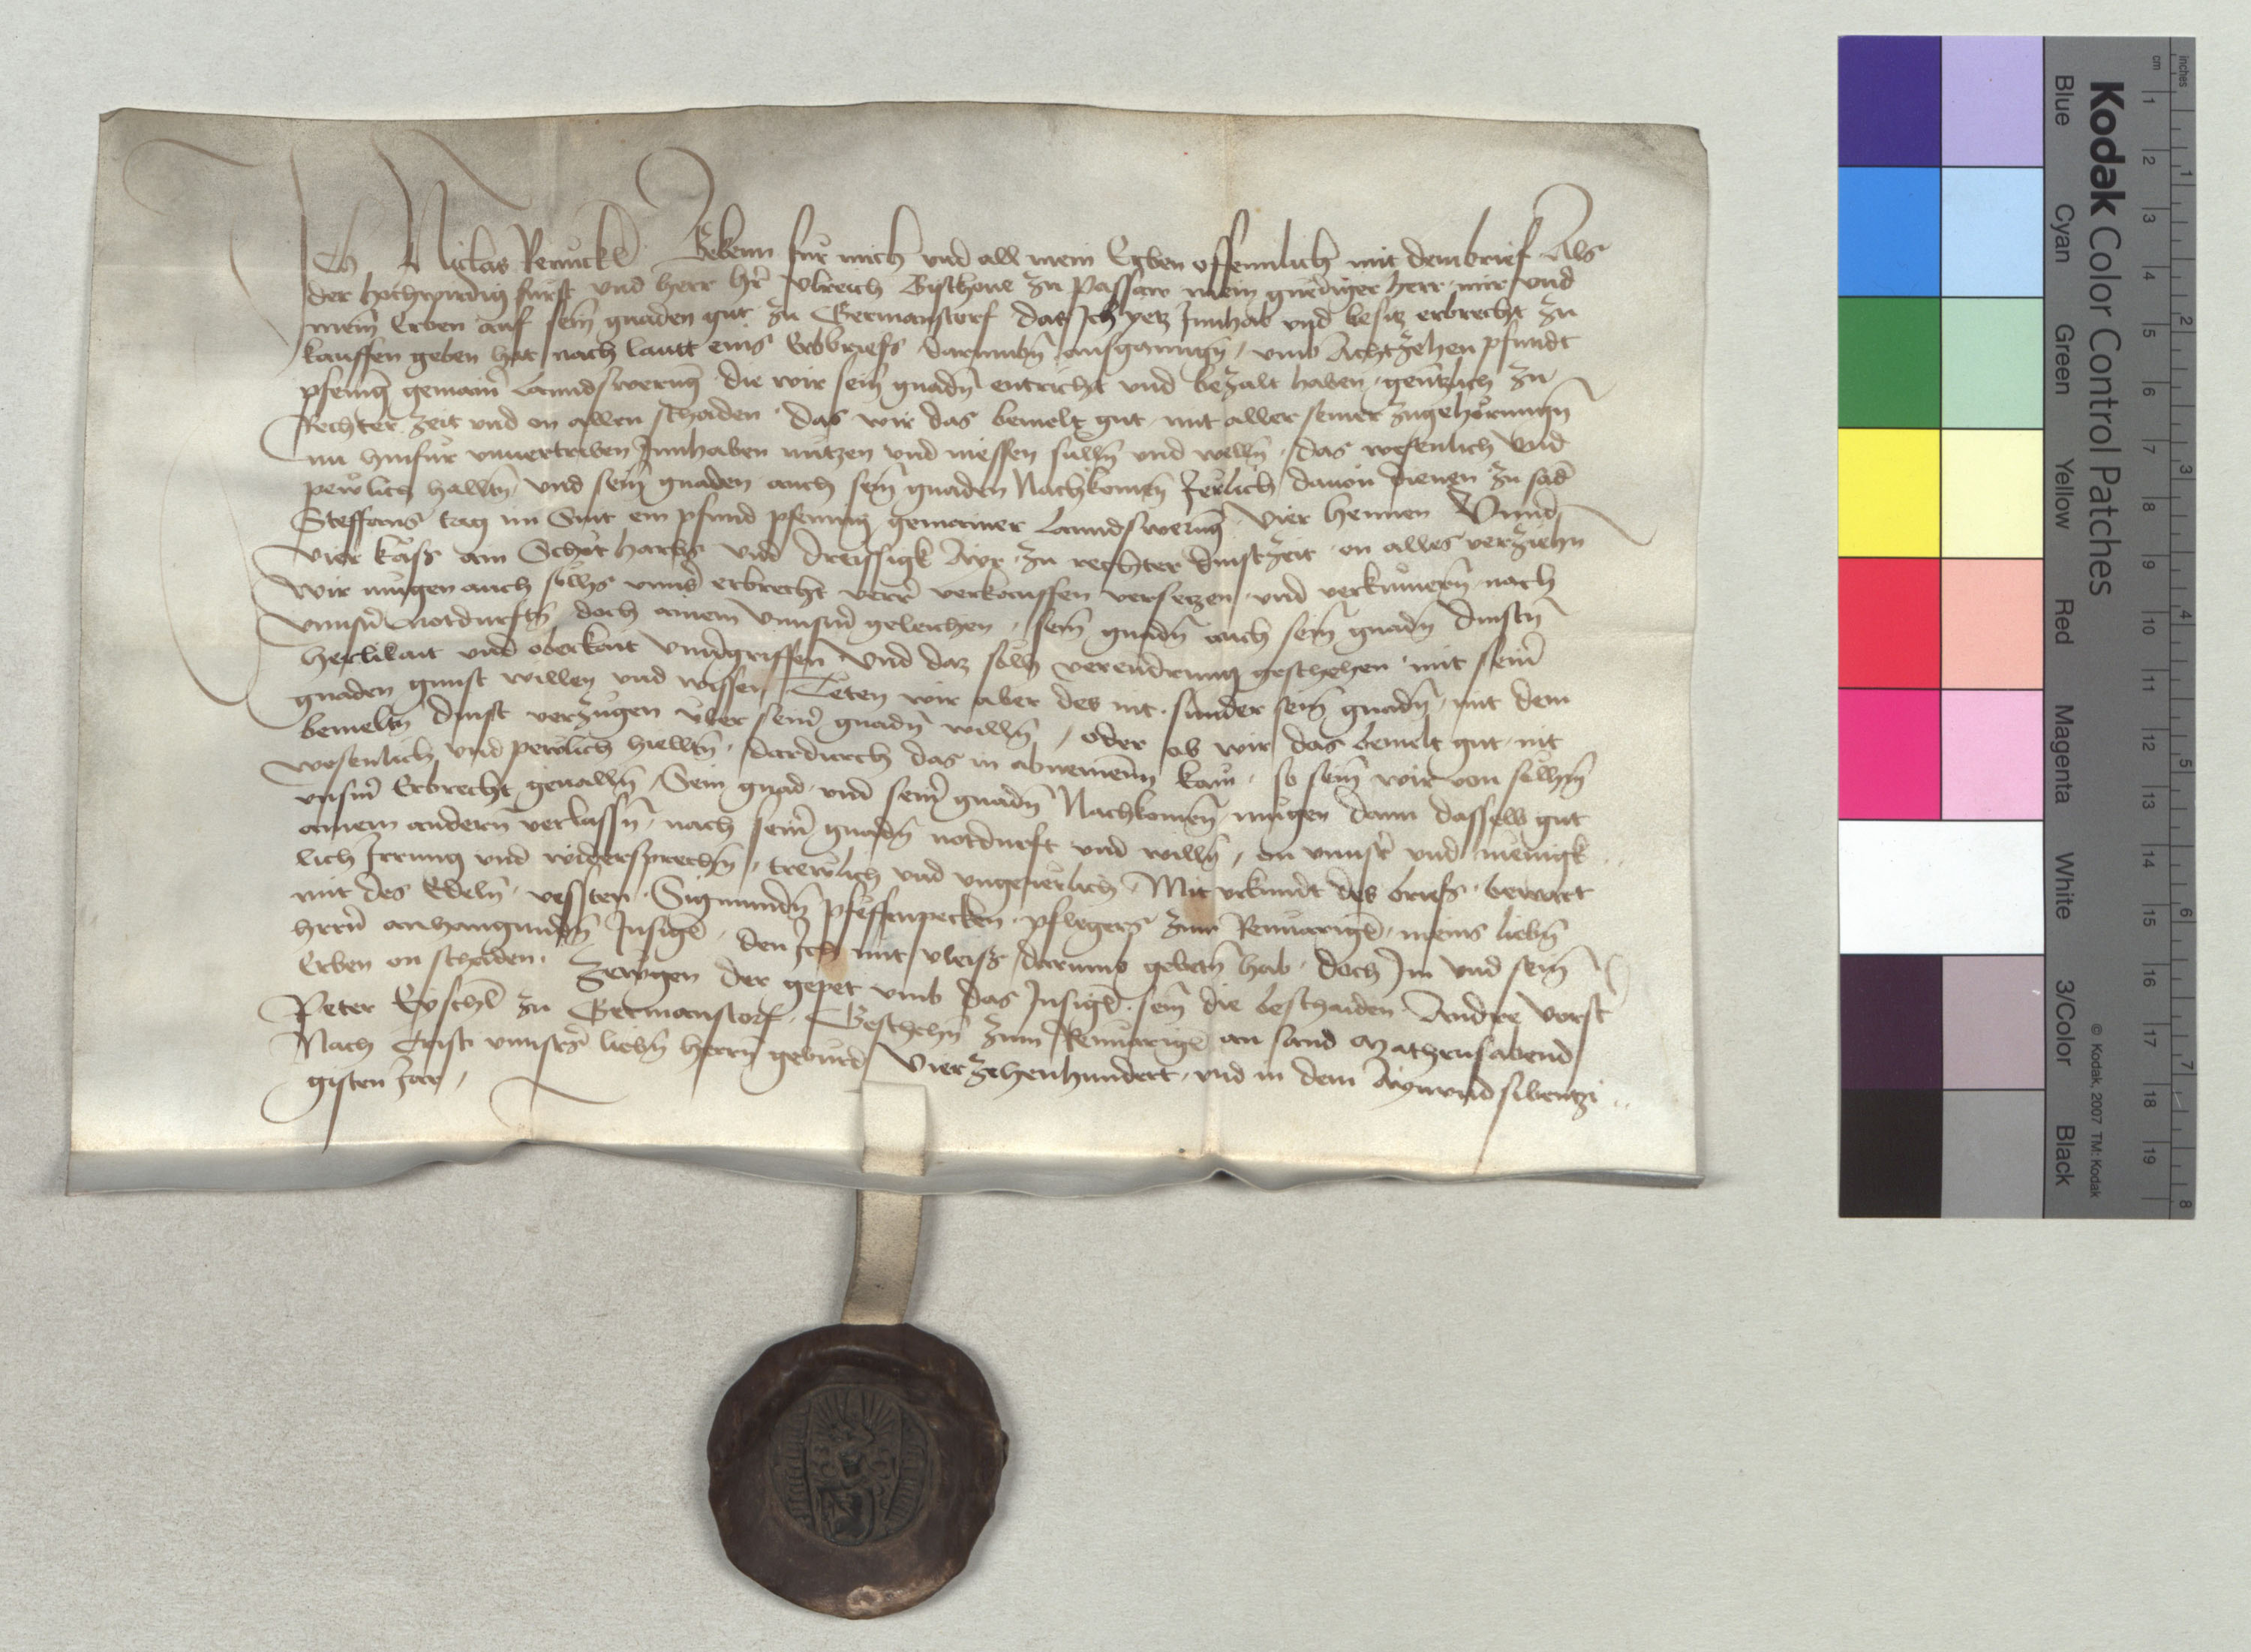 Ich Niclas Bekenn für mich vnd all mein Erben offennlich mit dem brief Als
der hochwirdig fürst vnd herr hr̄ Vlreich Bischoue zu Passaw mein gnediger herr mir vnd
mein̄ Erben auf sein̄ gnaden gut zu Germanstorf daz Ich yetz Innhab vnd besitz erbrecht zu
kauffen geben hat nach lautt eins Erbbriefs darumbn̄ ausganngn̄, vmb Achtzehen pfundt
pfening gemain̄ Lanndswerung die wir sein̄ gnadn̄ entricht vnd bezalt haben genntzlich zu
Rechter zeit vnd on allen schaden das wir das bemelt gut mit aller seiner zugehörungn̄
nu hinfür vnuertriben Innhaben nutzen vnd niessen sulln̄ vnd welln̄, das wesenlich vnd
pewlich halltn̄ vnd sein̄ gnaden auch sein̄ gnaden Nachkomen̄ Jerlich dauon dienen zu sand
Steffans tag im Snit ein pfund pfening gemainer Lanndswerung Vier hennen Vnnd
vier käss ain Schöt harbs vnd dreissigk Ayr zu rechter dinstzeit on alles verziehn
Wir mügen auch sölhs vnns̄ erbrecht verr̄ verkauffen versetzen vnd verkumern̄ nach
vnnsn̄ notdurftn̄ doch ainem vnnsm̄ geleichen, sein̄ gnadn̄ auch sein̄ gnadn̄ dinstn̄
herlikait vnd oberkait vnuergriffen Vnd daz sölh verendrung geschehen mit sein̄
gnaden gunst willen vnd wissen Teten wir aber des nit sunder sein̄ gnadn̄ mit dem
bemeltn̄ dinst verzugen über sein̄ gnadn̄ willn̄, oder ob wir das bemelt gut nit
wesenlich vnd pewlich hielltn̄, dardurch das in abnemen̄ kam, so sein̄ wir von sölhm̄
vnsm̄ Erbrecht geualln̄ Sein gnad vnd sein̄ gnadn̄ Nachkomen̄ mügen dann dasselb gut
ainem andern verlassn̄, nach sein̄ gnadn̄ notdurft vnd willn̄, on vnns̄ vnd menigk
lich Irrung vnd widersprechn̄, trewlich vnd vngeuerlich Mit vrkundt des briefs bewart
mit des Edeln̄ vessten Sigmundn̄ pfeffenpecken pflegers zum meins liebn̄
herrn̄ anhangundn̄ Insigl, den Ich mit vleiss darumb gebetn̄ hab doch Im vnd sein̄
Erben on schaden. Zewgen der gepet vmb das Insigl sein̄ die beschaiden Andre Vorst
Peter zu Germanstorf. Geschehn̄ zum an sand Matheusabend
Nach Cristi vnnsers̄ liebn̄ herrn̄ geburd Vierzehenhundert vnd in dem Aynvndsibentzi
gisten Jar,
Kodak Color Control Patches
Blue Cyan Green Yellow Red Magenta White 3/Color Black
© Kodak, 2007 TM: Kodak
cm 1 2 3 4 5 6 7 8 9 10 11 12 13 14 15 16 17 18 19
inches 1 2 3 4 5 6 7 8